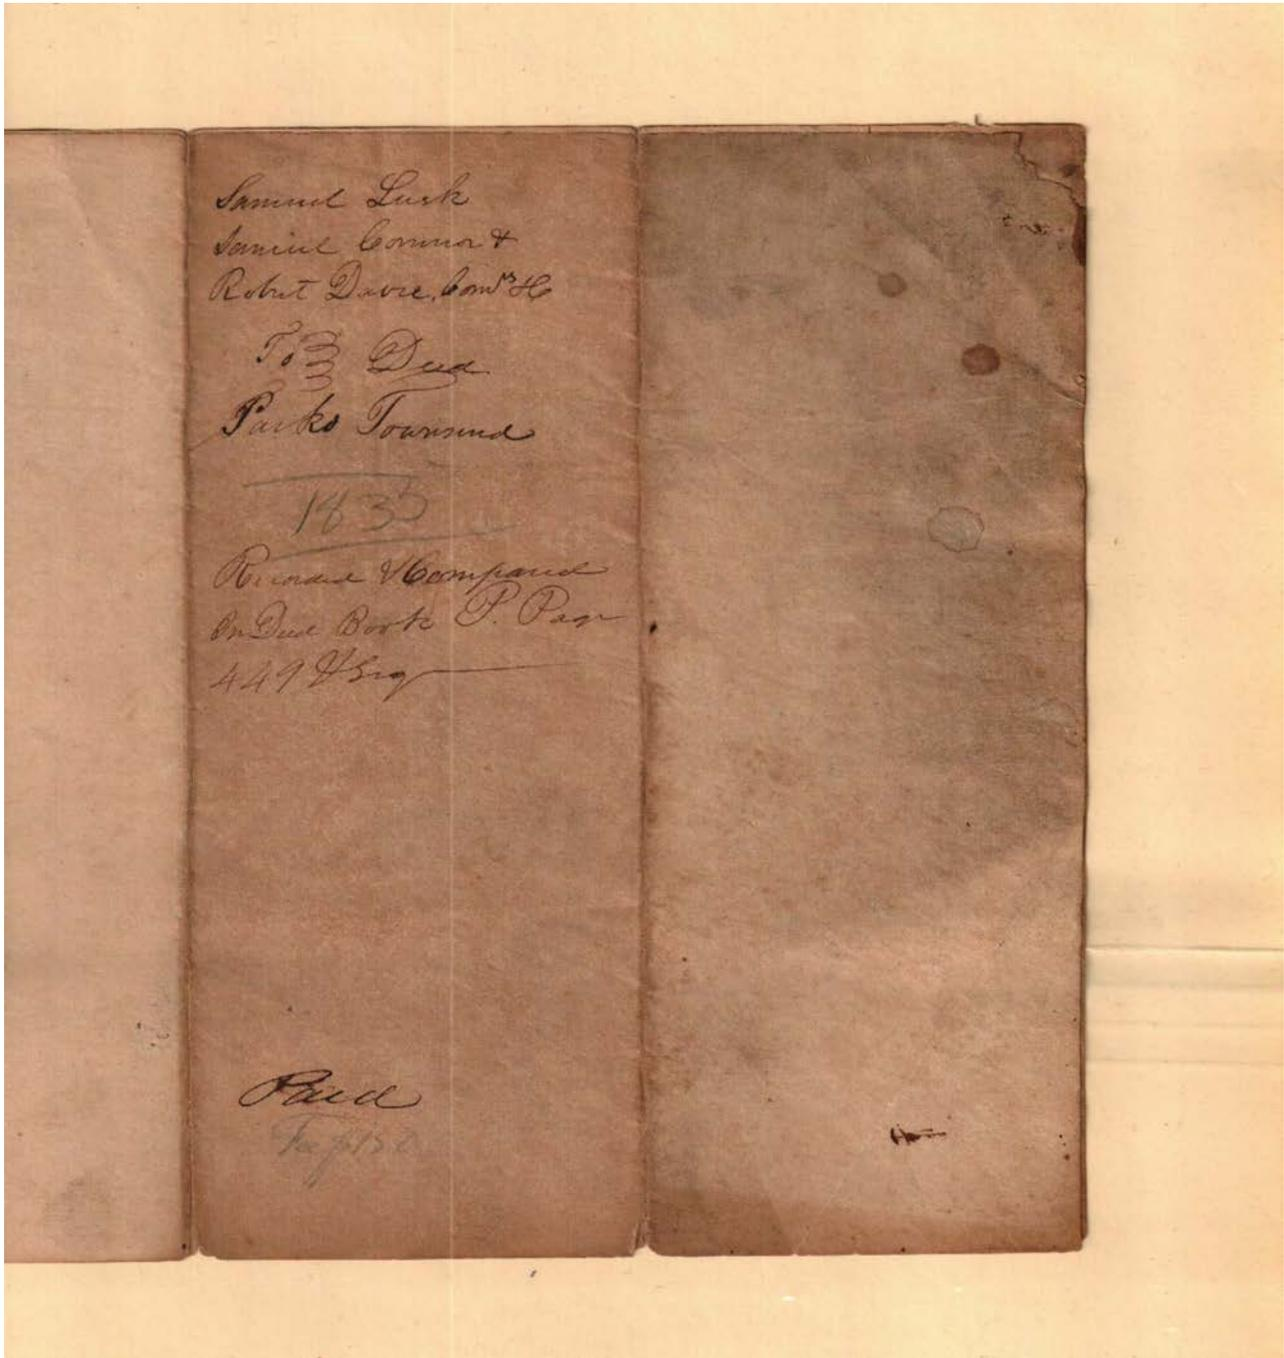 Samuel Lusk
Samuel Connor &
Robert Davie, Comrs &c
To Deed
Parks Townsend
1835
Recorded & Compared
In Deed Book P. Page
449 & Seq
Paid
Fee $1